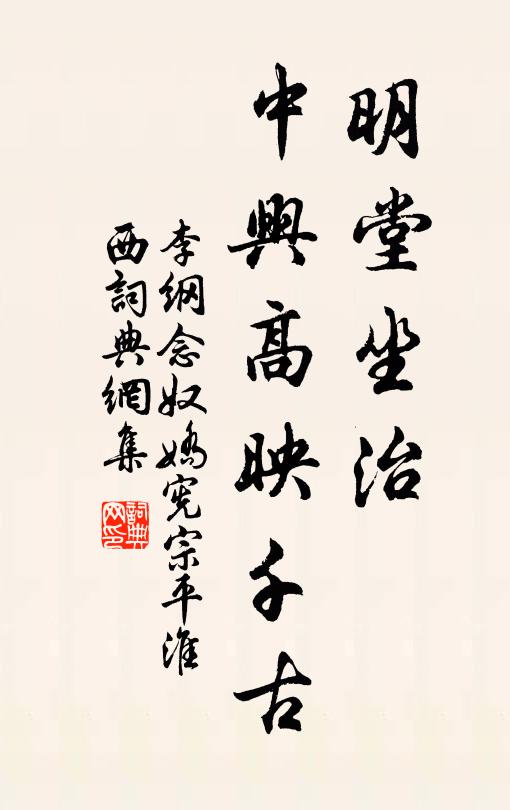 明堂坐治
中興高映千古
李綱念奴嬌憲宗平淮
西詞典網集
詞典
网印